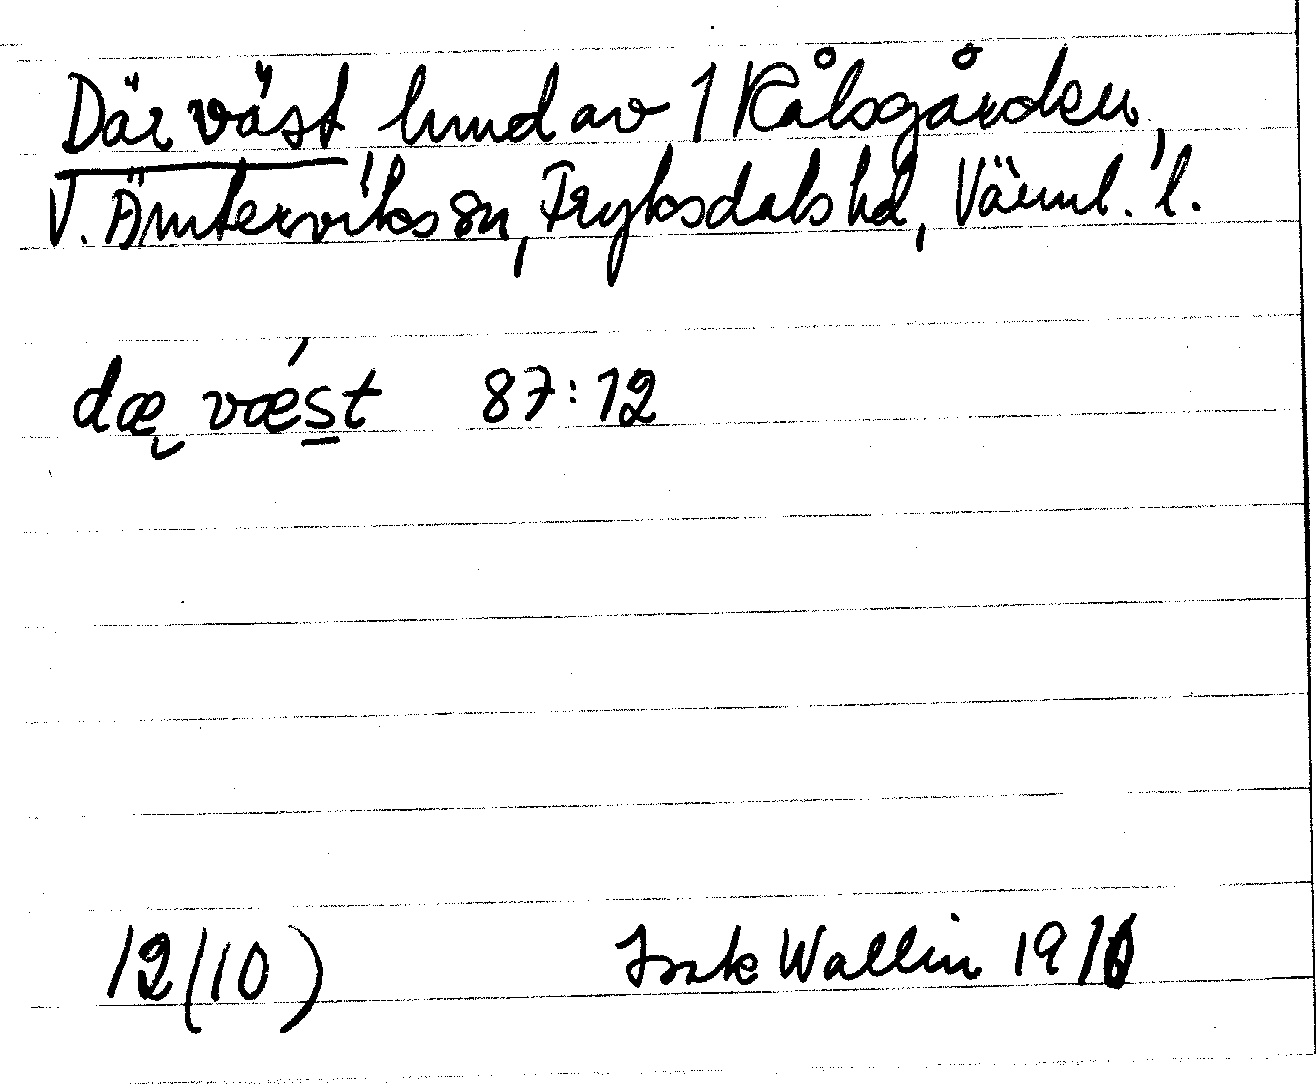 Där väst hmd av 1 Kålsgården,
V. Ämterviks sn, Fryksdals hd, Värml. l.
dæ̨ vǽs̲t 87:12
12(10) Isak Wallin 1916